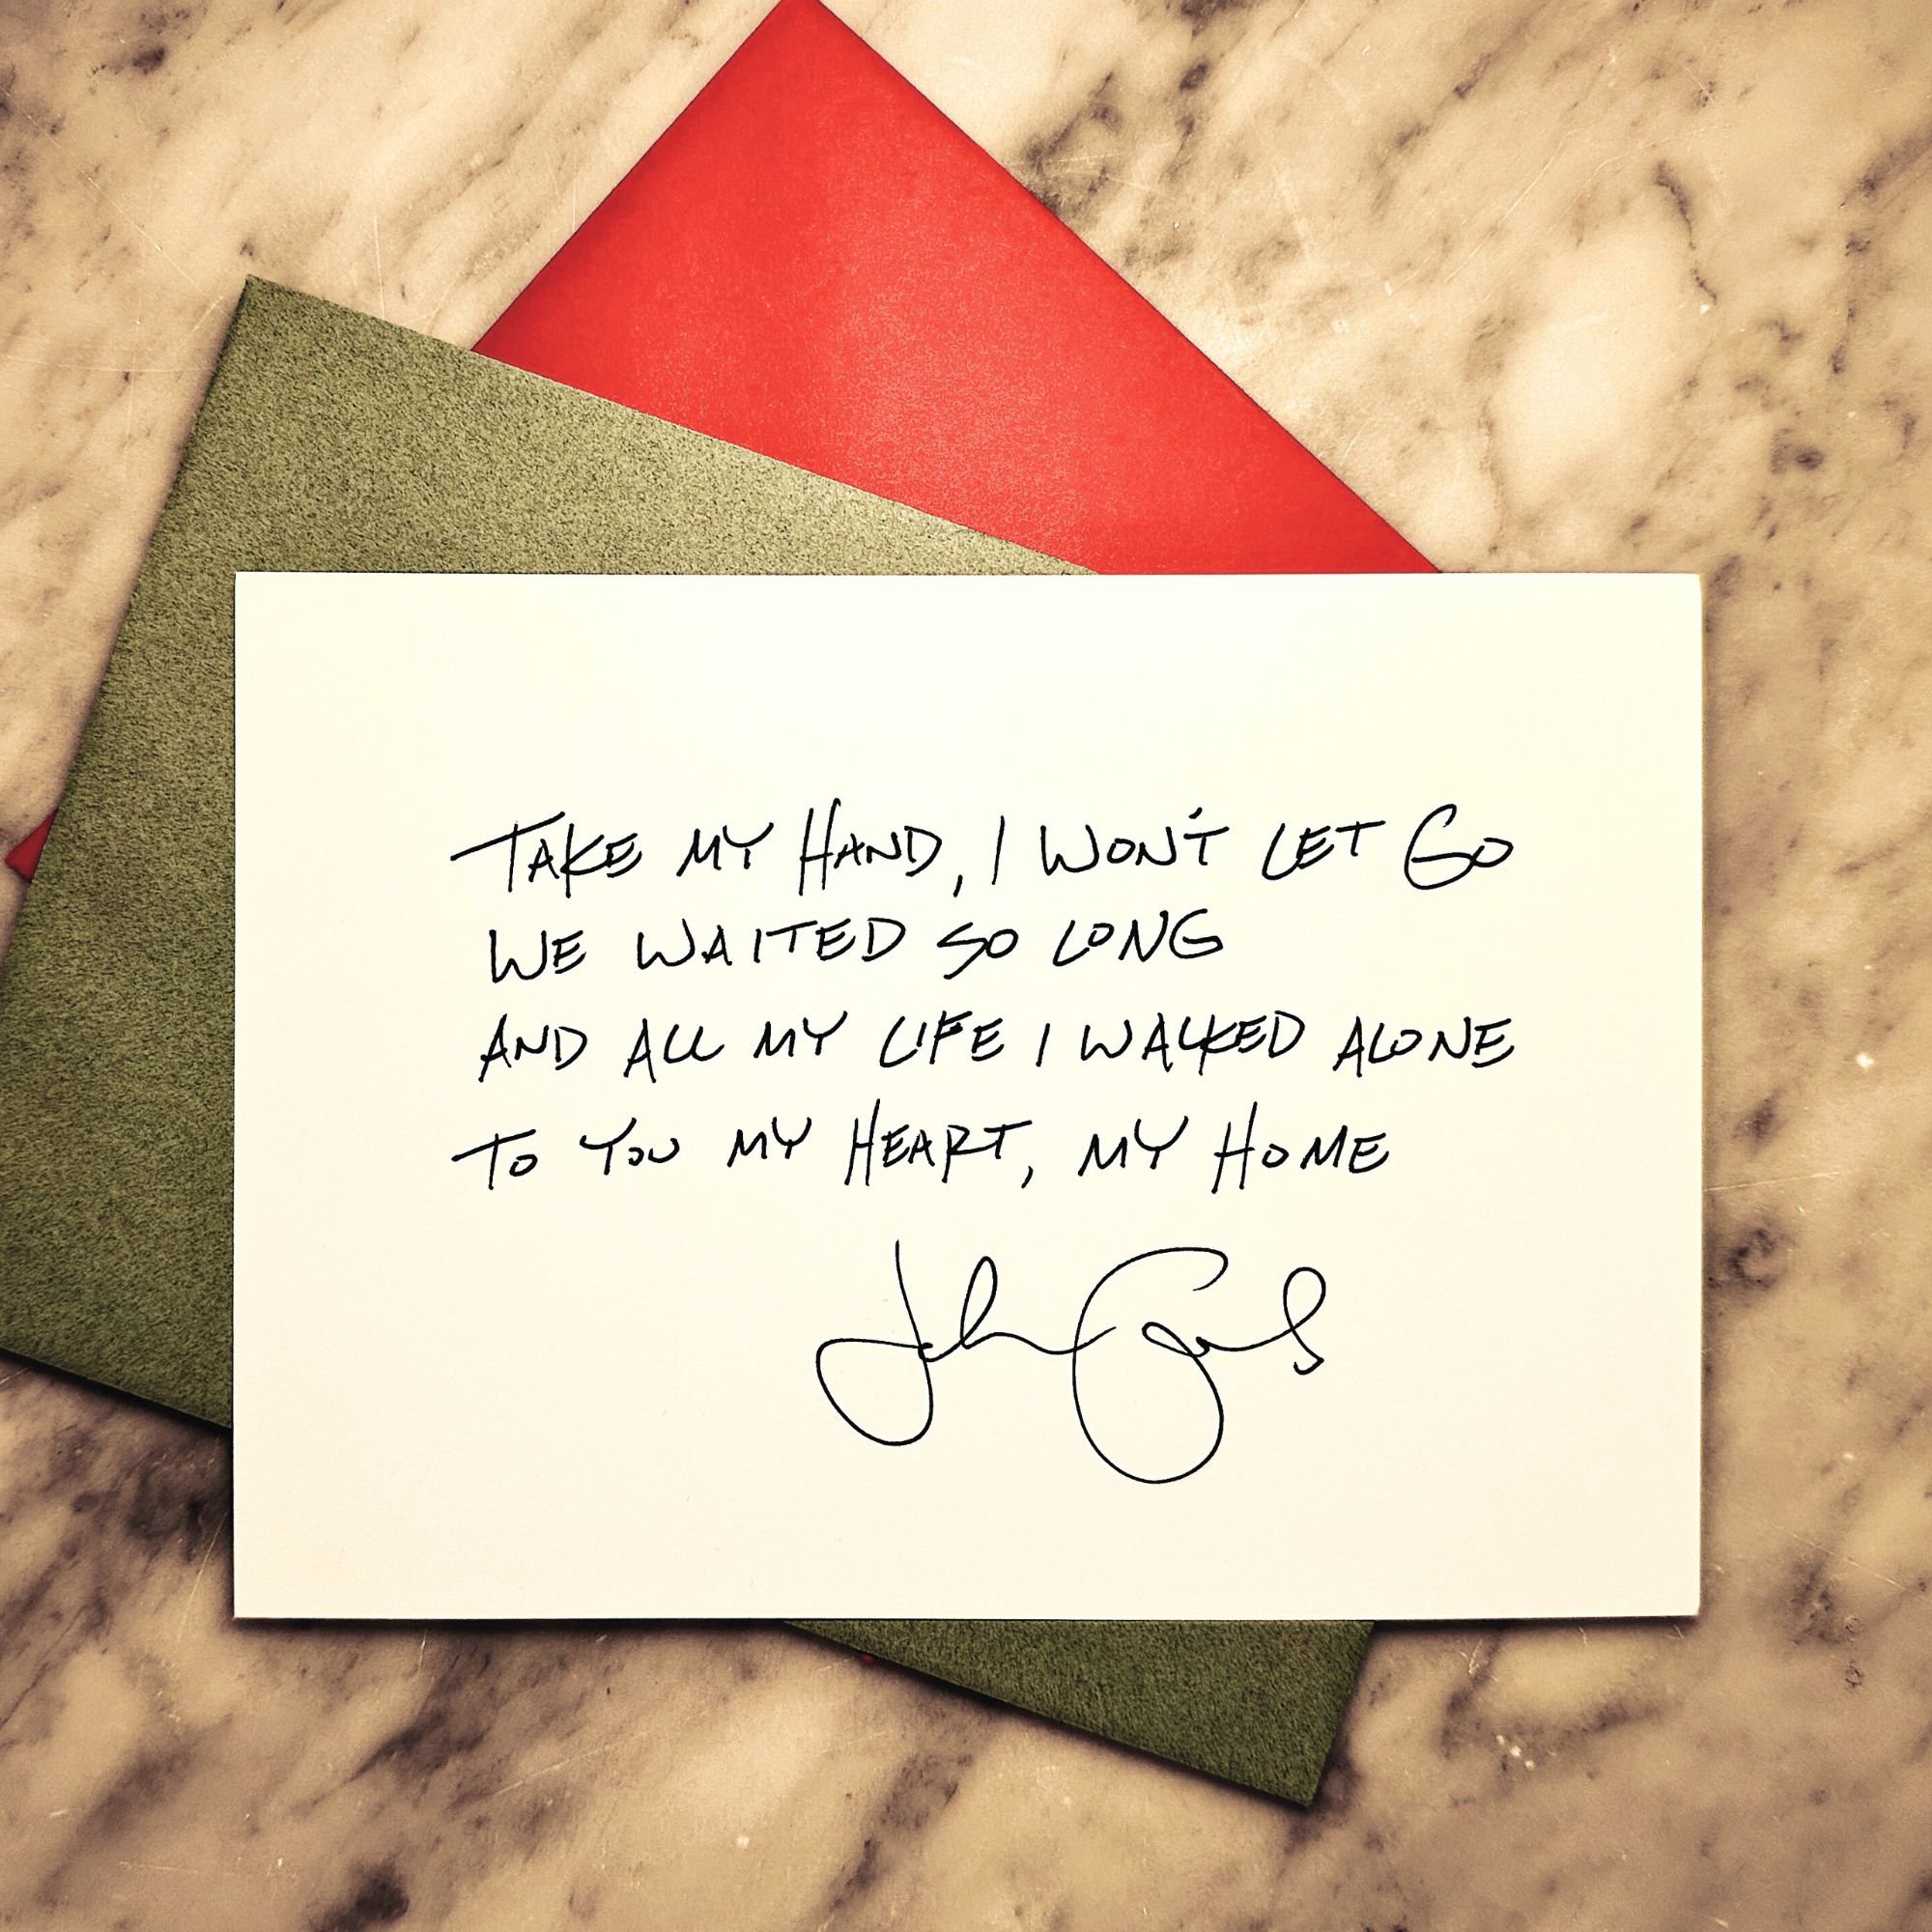 TAKE MY HAND, I WON'T LET GO
WE WAITED SO LONG
AND ALL MY LIFE I WALKED ALONE
TO YOU MY HEART, MY HOME
John